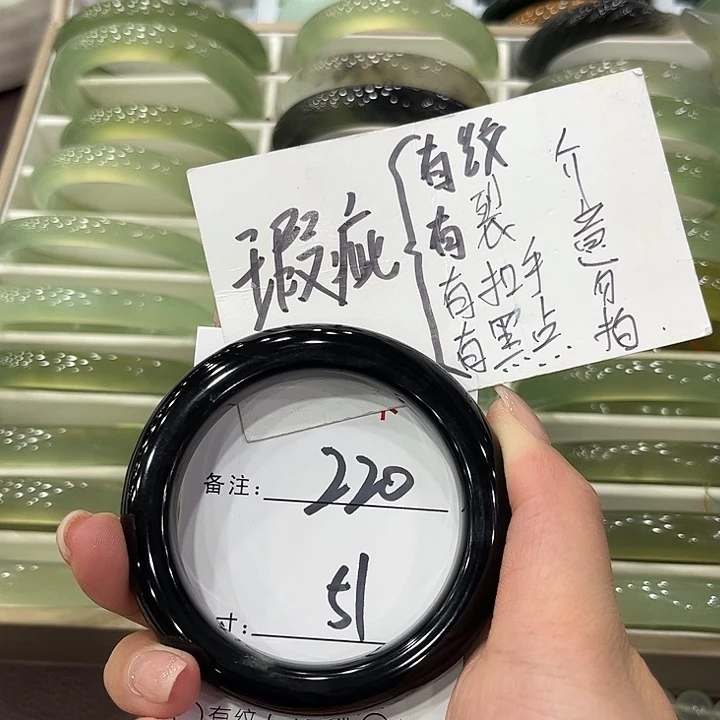 瑕疵
有纹
有裂
有拉手
有黑点
介意勿拍.
备注: 220
寸: 51
有纹